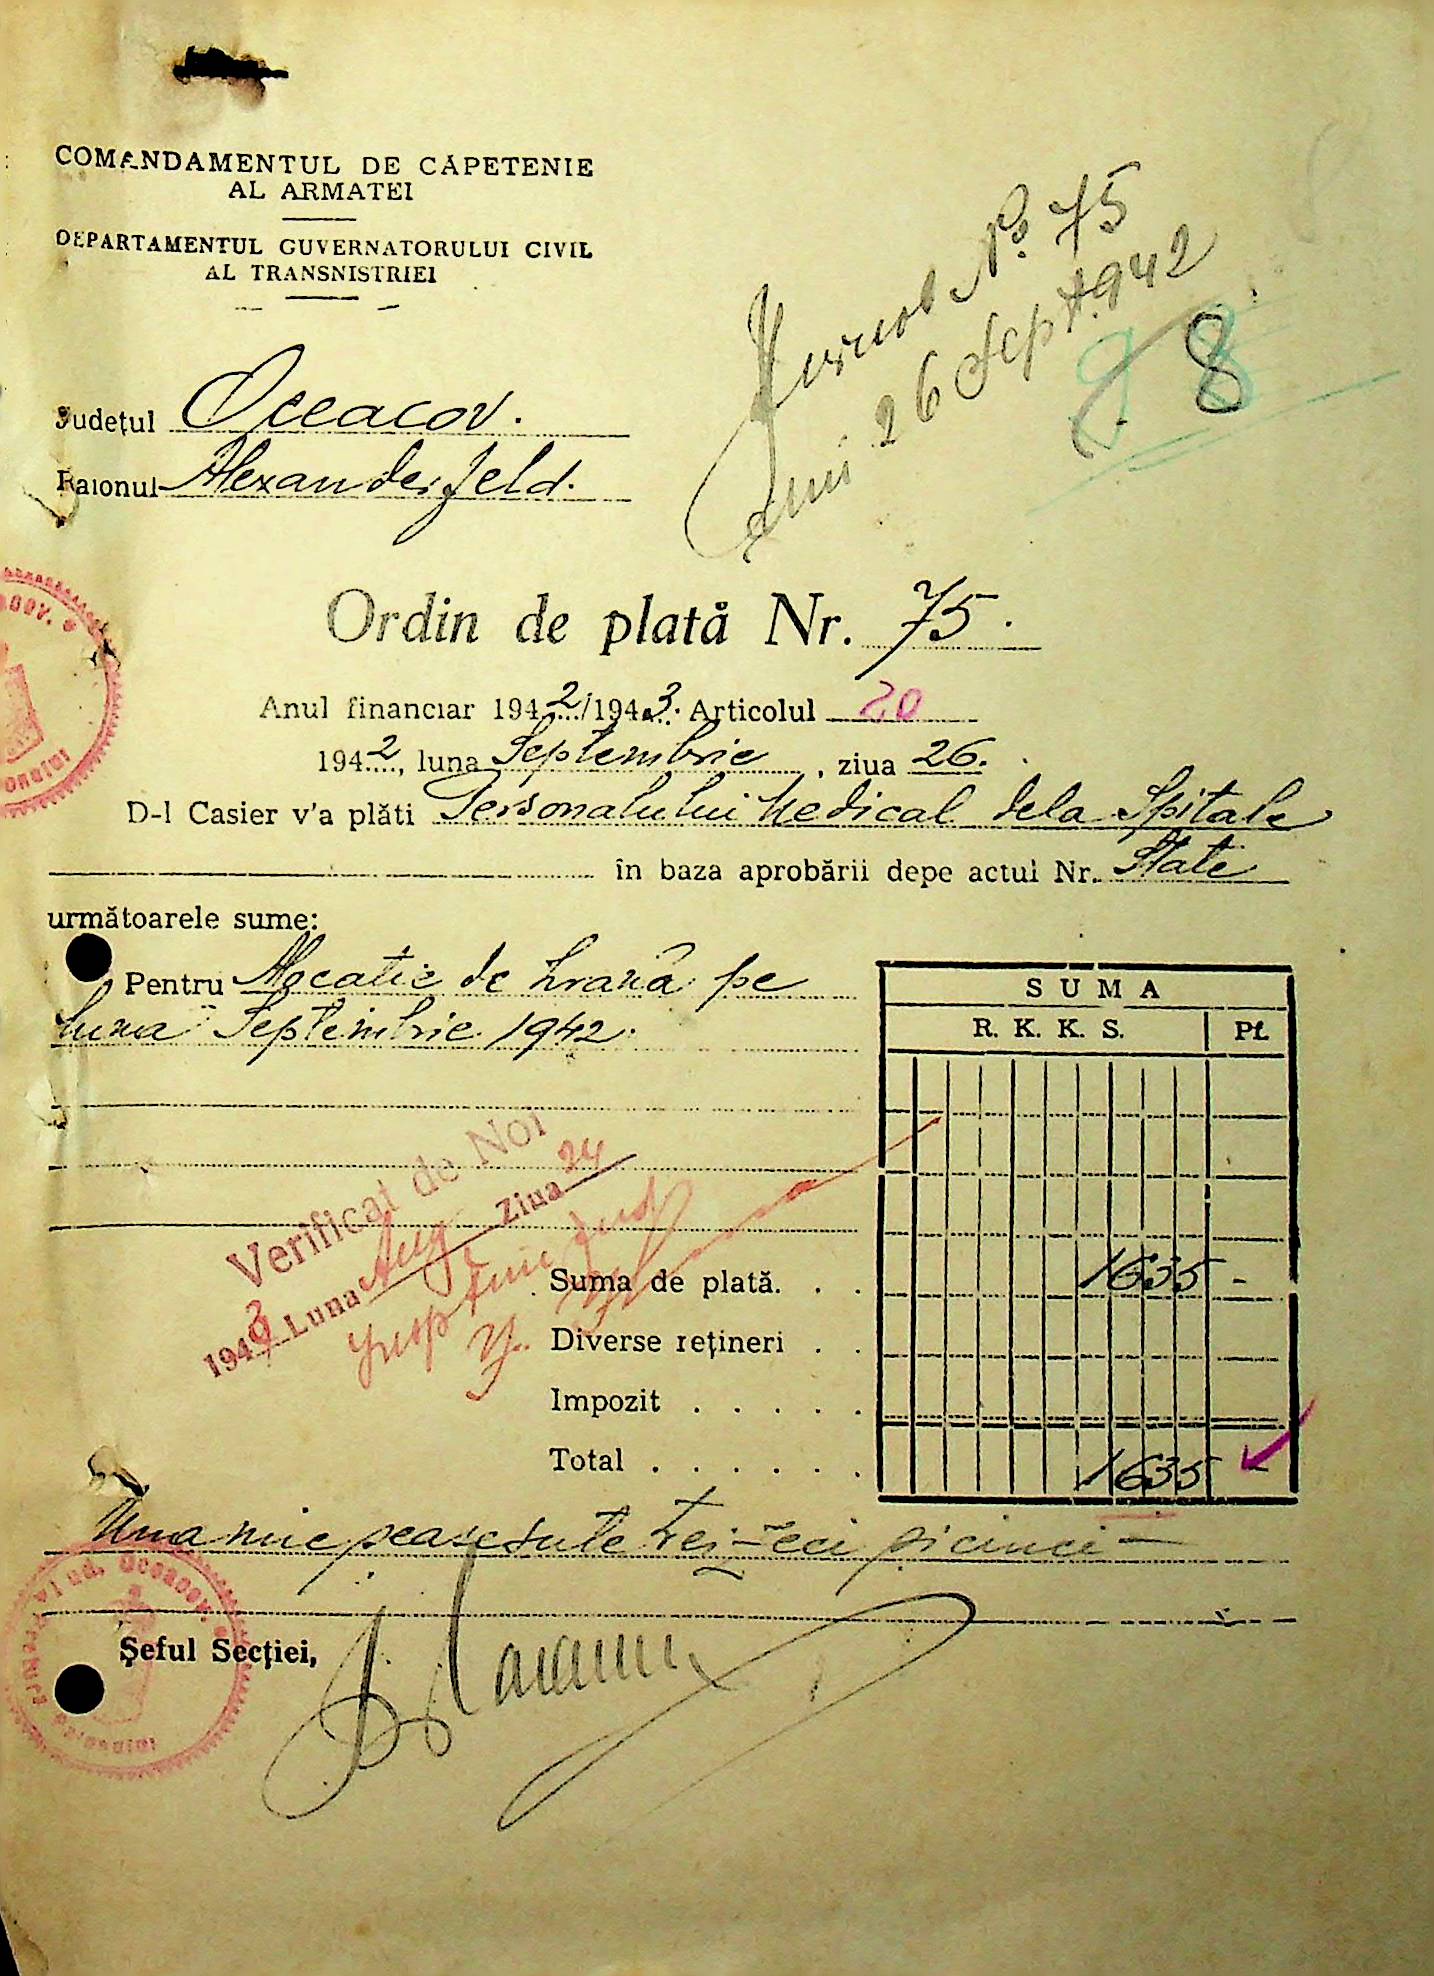 COMANDAMENTUL DE CĂPETENIE
AL ARMATEI
DEPARTAMENTUL GUVERNATORULUI CIVIL
AL TRANSNISTRIEI
No 75
26 Sept. 1942
8
Județul Oceacov.
Raionul Alexanderfeld.
Ordin de plată Nr. 75.
Anul financiar 1942/1943. Articolul 20
1942, luna Septembrie, ziua 26.
D-l Casier v'a plăti Personalului Medical dela Spitale
în baza aprobării depe actul Nr. State
următoarele sume:
Pentru Alocatie de hrană pe
luna Septembrie 1942.
SUMA
R. K. K. S. Pf.
Verificat de Noi
1943 Luna Aug Ziua 24
Suma de plată. . . 1635 -
Diverse rețineri . .
Impozit . . . . . .
Total . . . . . . . 1635 -
Una mie șeasesute treizeci și cinci -
Șeful Secției,
Pretura Raionului
Jud. Oceacov.